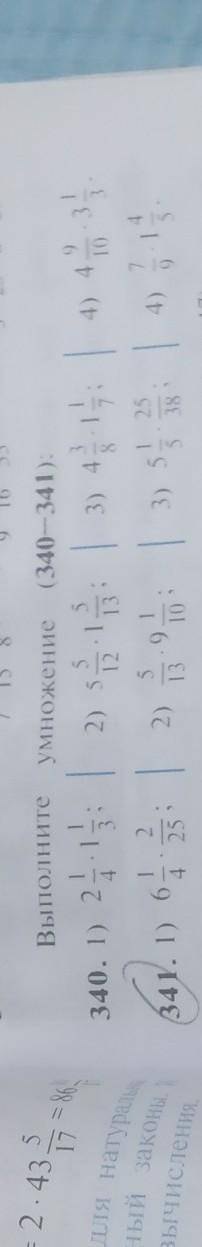 = 2 · 43 5/17 = 86
для натураль
ный законы.
вычисления.
9 16
Выполните умножение (340—341):
340. 1) 2 1/4 · 1 1/3; | 2) 5 5/12 · 1 5/13; | 3) 4 3/8 · 1 1/7; | 4) 4 9/10 · 3 1/3.
341. 1) 6 1/4 · 2/25; | 2) 5/13 · 9 1/10; | 3) 5 1/5 · 25/38; | 4) 7/9 · 1 4/5.